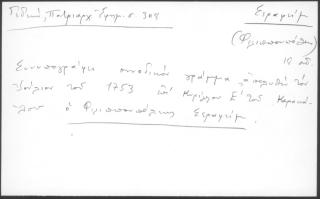 Γεδεών, Πατριαρχ. Ἐφημ. σ. 308
Σεραφείμ
(Φιλιππουπόλεως)
18 αἰ.
Συνυπογράφει συνοδικὸν γράμμα, ἀπολυθὲν τὸν
Ἰούλιον τοῦ 1753 ἐπὶ Κυρίλλου Ε' τοῦ Καρακά-
λου ὁ Φιλιππουπόλεως Σεραφείμ.